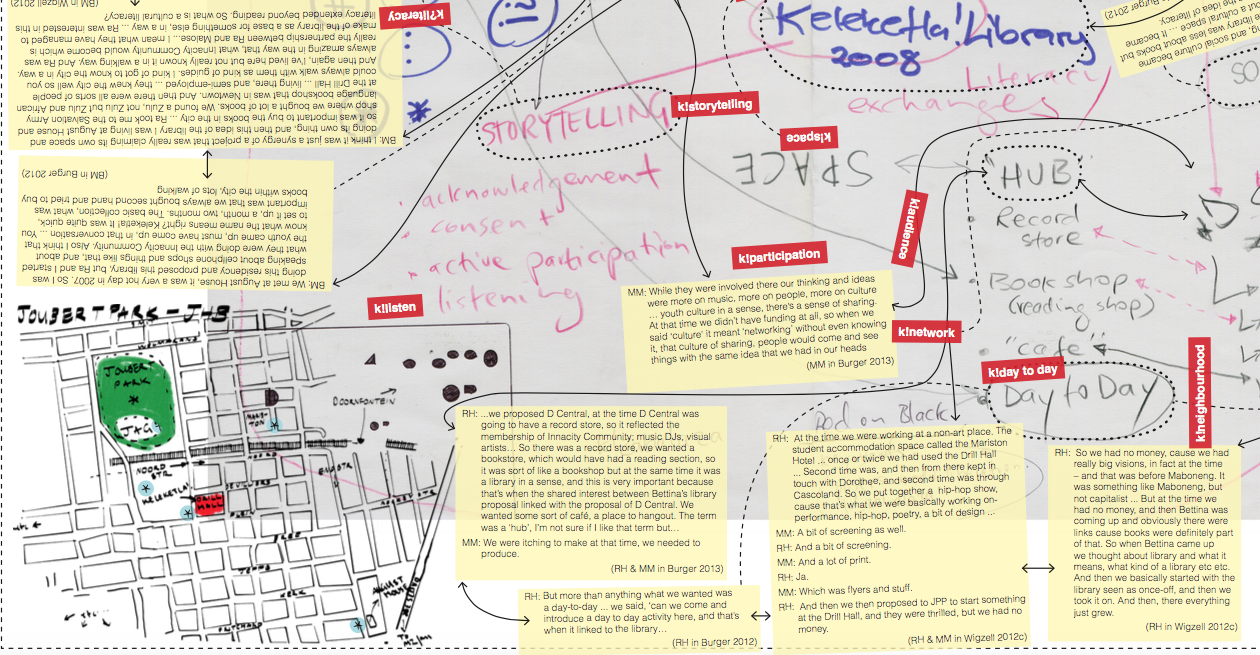 Keleketla! Library
2008
Literacy
exchanges
k!literacy
(BM in Wigzell 2012)
BM: I think it was just a synergy of a project that was really claiming its own space and
doing its own thing, and then this idea of the library I was living at August House and
so it was important to buy the books in the city ... Ra took me to the Salvation Army
shop where we bought a lot of books. We found a Zulu, not Zulu but Zulu and African
language bookshop that was in Newtown. And then there were all sorts of people
at the Drill Hall ... living there, and semi-employed ... they knew the city well so you
could always walk with them as kind of guides. I kind of got to know the city in a way.
And then again, I've lived here but not really known it in a walking way. And Ra was
always amazing in the way that, what Innacity Community would become which is
really the partnership between Ra and Malose... I mean what they have managed to
make of the library as a base for something else, in a way ... Ra was interested in this
literacy extended beyond reading. So what is a cultural literacy?
BM: We met at August House, it was a very hot day in 2007. So I was
doing this residency and proposed this library, but Ra and I started
speaking about cellphone shops and things like that, and about
what they were doing with the Innacity Community. Also I think that
the youth came up, must have come up, in that conversation ... You
know what the name means right? Keleketla! It was quite quick,
to set it up, a month, two months. The basic collection, what was
important was that we always bought second hand and tried to buy
books within the city, lots of walking
(BM in Burger 2012)
STORYTELLING
k!storytelling
k!space
SPACE
acknowledgement
consent
active participation
listening
k!listen
k!participation
k!audience
k!network
"HUB"
Record
store
Book shop
(reading shop)
"cafe"
k!day to day
Day to Day
k!neighbourhood
Pad on Black
MM: While they were involved there our thinking and ideas
were more on music, more on people, more on culture
... youth culture in a sense, there's a sense of sharing.
At that time we didn't have funding at all, so when we
said 'culture' it meant 'networking' without even knowing
it, that culture of sharing, people would come and see
things with the same idea that we had in our heads
(MM in Burger 2013)
JOUBERT PARK - JHB
JOUBERT
PARK
JAG
NOORD
STR
KELEKETLA!
DRILL
HALL
DOORNFONTEIN
AUGUST
HOUSE
RH: ...we proposed D Central, at the time D Central was
going to have a record store, so it reflected the
membership of Innacity Community; music DJs, visual
artists... So there was a record store, we wanted a
bookstore, which would have had a reading section, so
it was sort of like a bookshop but at the same time it was
a library in a sense, and this is very important because
that's when the shared interest between Bettina's library
proposal linked with the proposal of D Central. We
wanted some sort of café, a place to hangout. The term
was a 'hub', I'm not sure if I like that term but...
MM: We were itching to make at that time, we needed to
produce.
(RH & MM in Burger 2013)
RH: But more than anything what we wanted was
a day-to-day ... we said, 'can we come and
introduce a day to day activity here, and that's
when it linked to the library...
(RH in Burger 2012)
RH: At the time we were working at a non-art place. The
student accommodation space called the Mariston
Hotel ... once or twice we had used the Drill Hall
... Second time was, and then from there kept in
touch with Dorothee, and second time was through
Cascoland. So we put together a hip-hop show,
cause that's what we were basically working on-
performance, hip-hop, poetry, a bit of design ...
MM: A bit of screening as well.
RH: And a bit of screening.
MM: And a lot of print.
RH: Ja.
MM: Which was flyers and stuff.
RH: And then we then proposed to JPP to start something
at the Drill Hall, and they were thrilled, but we had no
money.
(RH & MM in Wigzell 2012c)
RH: So we had no money, cause we had
really big visions, in fact at the time
– and that was before Maboneng. It
was something like Maboneng, but
not capitalist ... But at the time we
had no money, and then Bettina was
coming up and obviously there were
links cause books were definitely part
of that. So when Bettina came up
we thought about library and what it
means, what kind of a library etc etc.
And then we basically started with the
library seen as once-off, and then we
took it on. And then, there everything
just grew.
(RH in Wigzell 2012c)